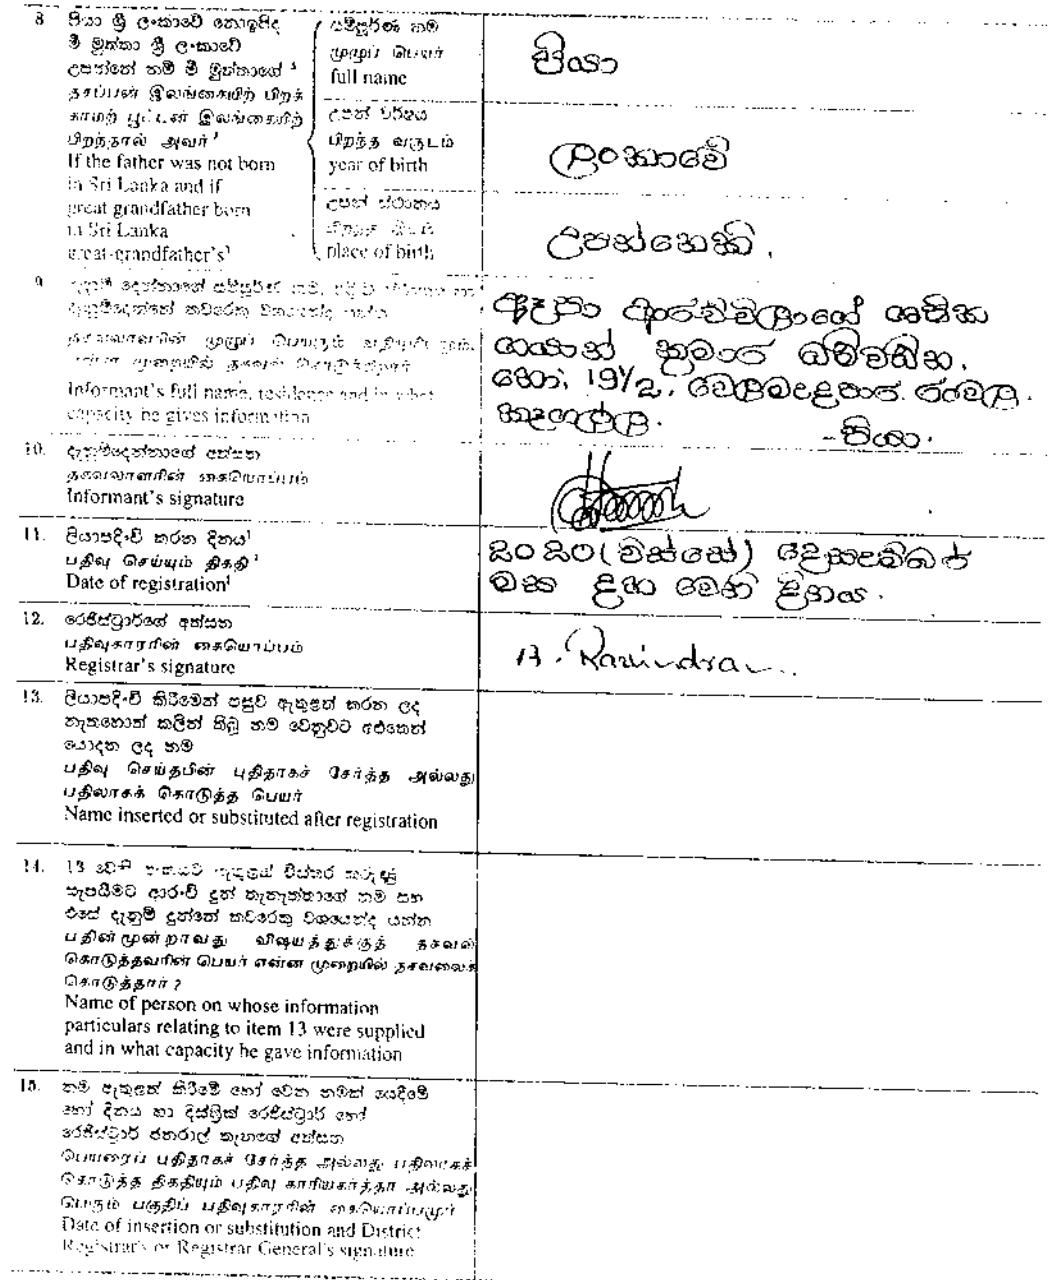 8 පියා ශ්‍රී ලංකාවේ නොඉපිද
මී මුත්තා ශ්‍රී ලංකාවේ
උපන්නේ නම් මී මුත්තාගේ
தகப்பன் இலங்கையிற் பிறக்
காமற் பூட்டன் இலங்கையிற்
பிறந்தால் அவர்
If the father was not born
in Sri Lanka and if
great grandfather born
in Sri Lanka
great-grandfather's¹
සම්පූර්ණ නම
முழுப் பெயர்
full name
පියා
උපන් වර්ෂය
பிறந்த வருடம்
year of birth
ලංකාවේ
උපන් ස්ථානය
பிறந்த இடம்
place of birth
උපන්නෙකි.
9 දැනුම් දෙන්නාගේ සම්පූර්ණ නම, පදිංචි ස්ථානය හා
දැනුම්දෙන්නේ කවරෙකු වශයෙන්ද යන්න
தகவலாளரின் முழுப் பெயரும் வதிவிடமும்,
என்ன முறையில் தகவல் கொடுக்கிறார்
Informant's full name, residence and in what
capacity he gives information
ඈපා ආරච්චිලාගේ
ගයාන් කුමාර
නො, 19½,
කෑගල්ල. - පියා.
10. දැනුම්දෙන්නාගේ අත්සන
தகவலாளரின் கையொப்பம்
Informant's signature
11. ලියාපදිංචි කරන දිනය¹
பதிவு செய்யும் திகதி ¹
Date of registration¹
2020 (විස්සේ) දෙසැම්බර්
මස දහ වෙනි දිනය.
12. රෙජිස්ට්‍රාර්ගේ අත්සන
பதிவுகாரரின் கையொப்பம்
Registrar's signature
Ravindra
13. ලියාපදිංචි කිරීමෙන් පසුව ඇතුළත් කරන ලද
නැතහොත් කලින් තිබූ නම වෙනුවට අළුතෙන්
යොදන ලද නම
பதிவு செய்தபின் புதிதாகச் சேர்த்த அல்லது
பதிலாகக் கொடுத்த பெயர்
Name inserted or substituted after registration
14. 13 වෙනි විස්තර කරුණු
සැපයීමට ආරංචි දුන් තැනැත්තාගේ නම සහ
එසේ දැනුම් දුන්නේ කවරෙකු වශයෙන්ද යන්න
பதின்மூன்றாவது விஷயத்துக்குத் தகவல்
கொடுத்தவரின் பெயர் என்ன முறையில் தகவலைக்
கொடுத்தார் ?
Name of person on whose information
particulars relating to item 13 were supplied
and in what capacity he gave information
15. නම ඇතුළත් කිරීමේ හෝ වෙන නමක් යෙදීමේ
හෝ දිනය හා දිස්ත්‍රික් රෙජිස්ට්‍රාර් හෝ
රෙජිස්ට්‍රාර් ජනරාල් තැනගේ අත්සන
பெயரைப் புதிதாகச் சேர்த்த அல்லது பதிலாகக்
கொடுத்த திகதியும் பதிவு காரியகர்த்தா அல்லது
பெரும் பகுதிப் பதிவுகாரரின் கையொப்பமும்
Date of insertion or substitution and District
Registrar's or Registrar General's signature